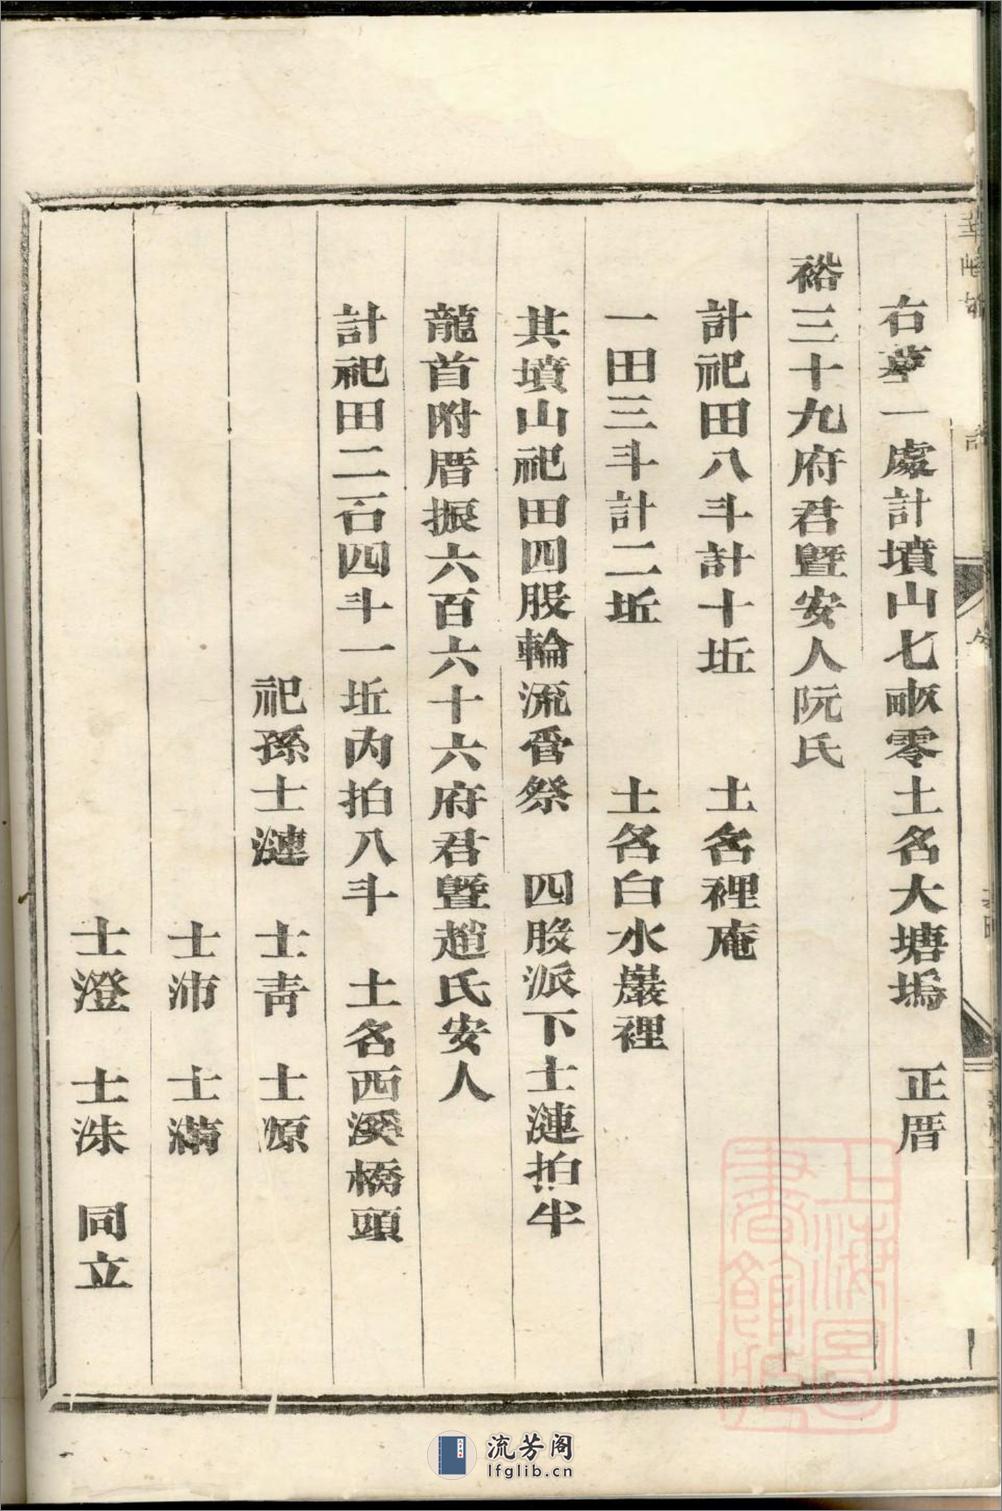 右墓一處計墳山七畝零土名大塘塢　正厝
裕三十九府君暨安人阮氏
計祀田八斗計十坵　土名裡庵
一田三斗計二坵　土名白水巖裡
其墳山祀田四股輪流畨祭　四股派下士漣拍半
龍首附厝振六百六十六府君暨趙氏安人
計祀田二石四斗一坵內拍八斗　土名西溪橋頭
祀孫士漣　士青　士源
士沛　士滿
士澄　士洙　同立
上海圖書館藏
流芳阁
lfglib.cn